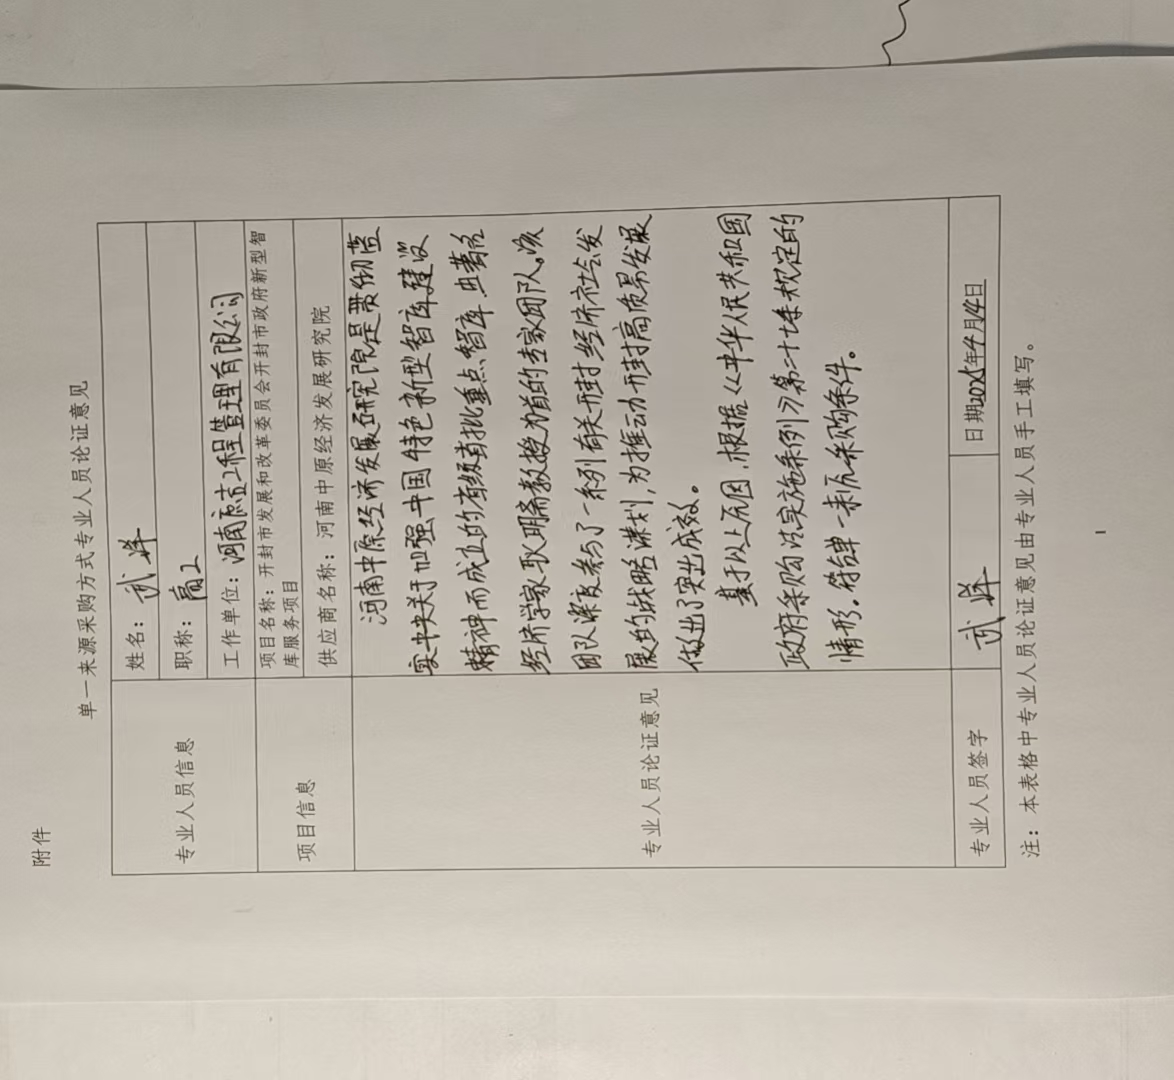 附件
单一来源采购方式专业人员论证意见
专业人员信息
姓名：武洋
职称：高工
工作单位：河南 工程管理有限公司
项目信息
项目名称：开封市发展和改革委员会开封市政府新型智
库服务项目
供应商名称：河南中原经济发展研究院
专业人员论证意见
河南中原经济发展研究院是贯彻落
实中央关于加强中国特色新型智库建设
精神而成立的省级首批重点智库，由著名
经济学家耿明斋教授为首的专家团队。该
团队深度参与了一系列有关开封经济社会发
展的战略谋划，为推动开封高质量发展
做出了突出成效。
基于以上原因，根据《中华人民共和国
政府采购法实施条例》第二十七条规定的
情形，符合单一来源采购条件。
专业人员签字
武洋
日期 4月14日
注：本表格中专业人员论证意见由专业人员手工填写。
1